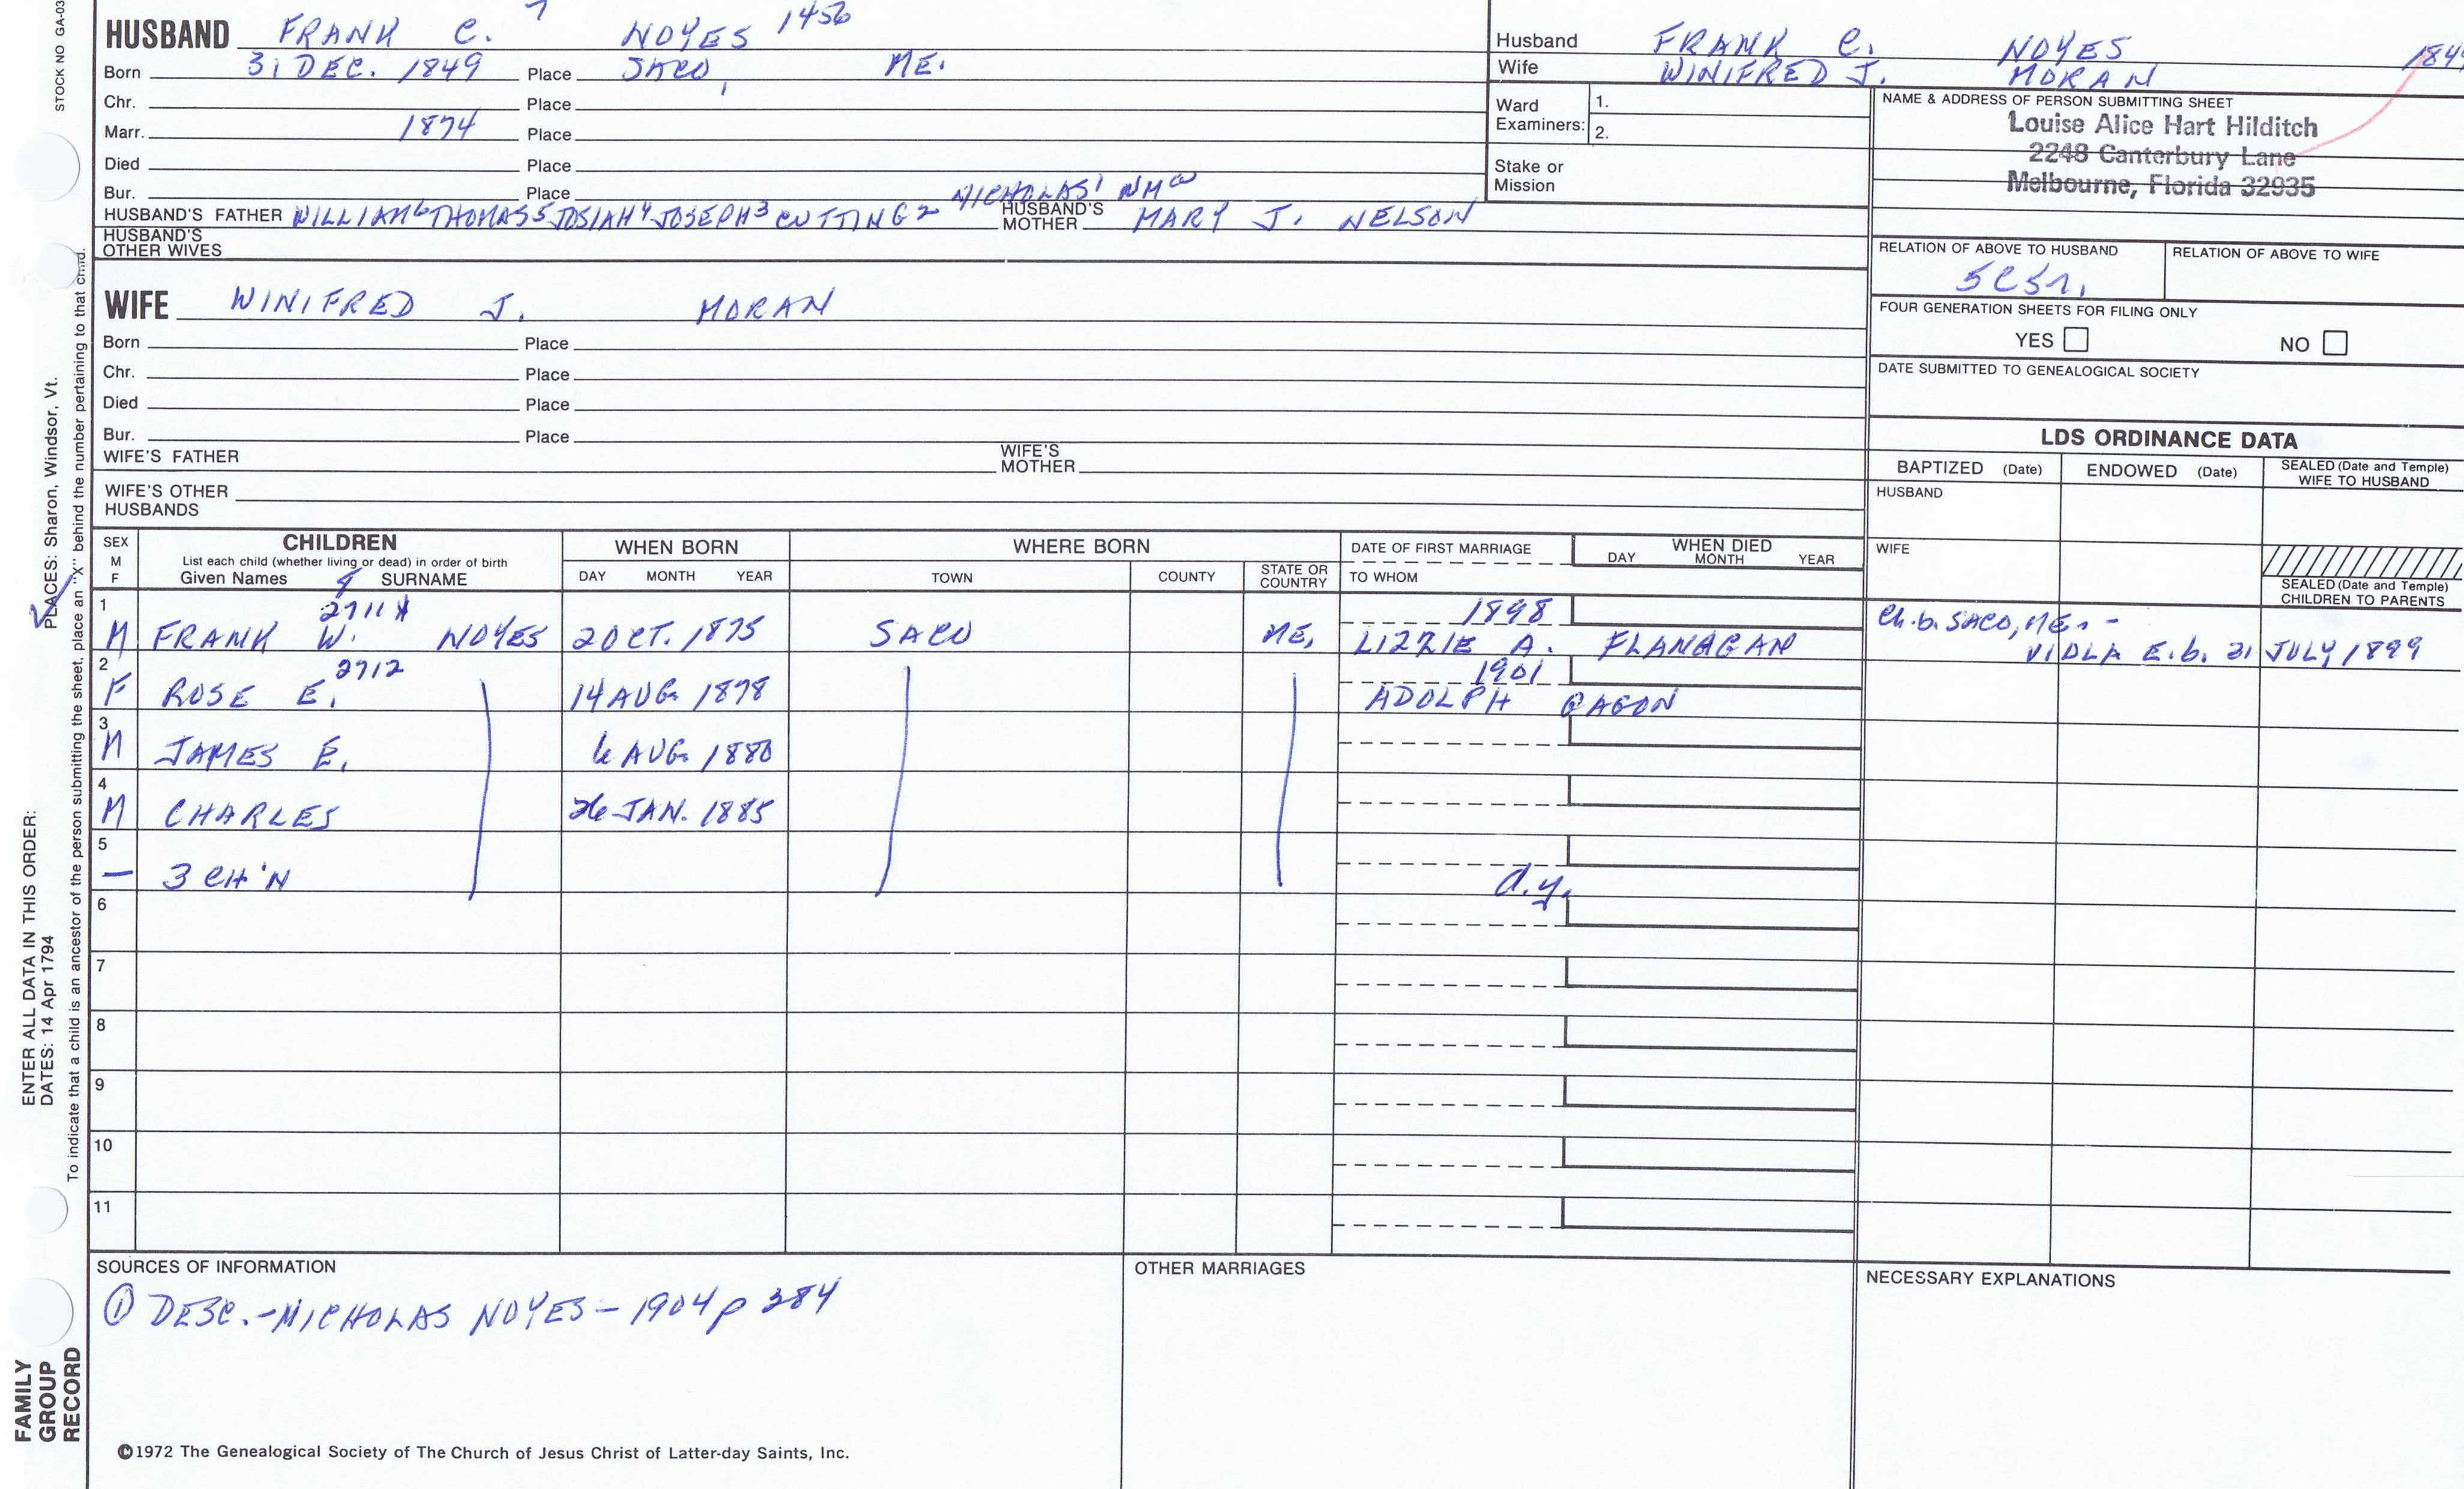 STOCK NO GA-03
7
HUSBAND FRANK C. NOYES 1456
Born 31 DEC. 1849 Place SACO, ME.
Chr. Place
Marr. 1874 Place
Died Place
Bur. Place NICHOLAS1
HUSBAND'S FATHER WILLIAM6 THOMAS5 JOSIAH4 JOSEPH3 CUTTING2 HUSBAND'S MOTHER MARY J. NELSON
HUSBAND'S OTHER WIVES
WIFE WINIFRED J. MORAN
Born Place
Chr. Place
Died Place
Bur. Place
WIFE'S FATHER WIFE'S MOTHER
WIFE'S OTHER HUSBANDS
Husband FRANK C. NOYES
Wife WINIFRED J. MORAN
Ward Examiners: 1.
2.
Stake or Mission
NAME & ADDRESS OF PERSON SUBMITTING SHEET
Louise Alice Hart Hilditch
2248 Canterbury Lane
Melbourne, Florida 32935
RELATION OF ABOVE TO HUSBAND RELATION OF ABOVE TO WIFE
FOUR GENERATION SHEETS FOR FILING ONLY
YES NO
DATE SUBMITTED TO GENEALOGICAL SOCIETY
LDS ORDINANCE DATA
BAPTIZED (Date) ENDOWED (Date) SEALED (Date and Temple) WIFE TO HUSBAND
HUSBAND
WIFE
SEALED (Date and Temple) CHILDREN TO PARENTS
SEX M F
CHILDREN
List each child (whether living or dead) in order of birth
Given Names SURNAME
WHEN BORN
DAY MONTH YEAR
WHERE BORN
TOWN COUNTY STATE OR COUNTRY
DATE OF FIRST MARRIAGE
TO WHOM
WHEN DIED
DAY MONTH YEAR
1 2711 X 1898 Ch. b. SACO, ME. -
M FRANK W. NOYES 2 OCT. 1875 SACO ME. LIZZIE A. FLANAGAN VIOLA E. b. 31 JULY 1899
2 2712 1901
F ROSE E. 14 AUG. 1878 ADOLPH GAGON
3
M JAMES E. 6 AUG. 1880
4
M CHARLES 26 JAN. 1885
5
— 3 CH'N d.y.
6
7
8
9
10
11
SOURCES OF INFORMATION
① DESC. - NICHOLAS NOYES - 1904 p 384
OTHER MARRIAGES
NECESSARY EXPLANATIONS
©1972 The Genealogical Society of The Church of Jesus Christ of Latter-day Saints, Inc.
FAMILY GROUP RECORD
ENTER ALL DATA IN THIS ORDER:
DATES: 14 Apr 1794
PLACES: Sharon, Windsor, Vt.
To indicate that a child is an ancestor of the person submitting the sheet, place an "X" behind the number pertaining to that child.